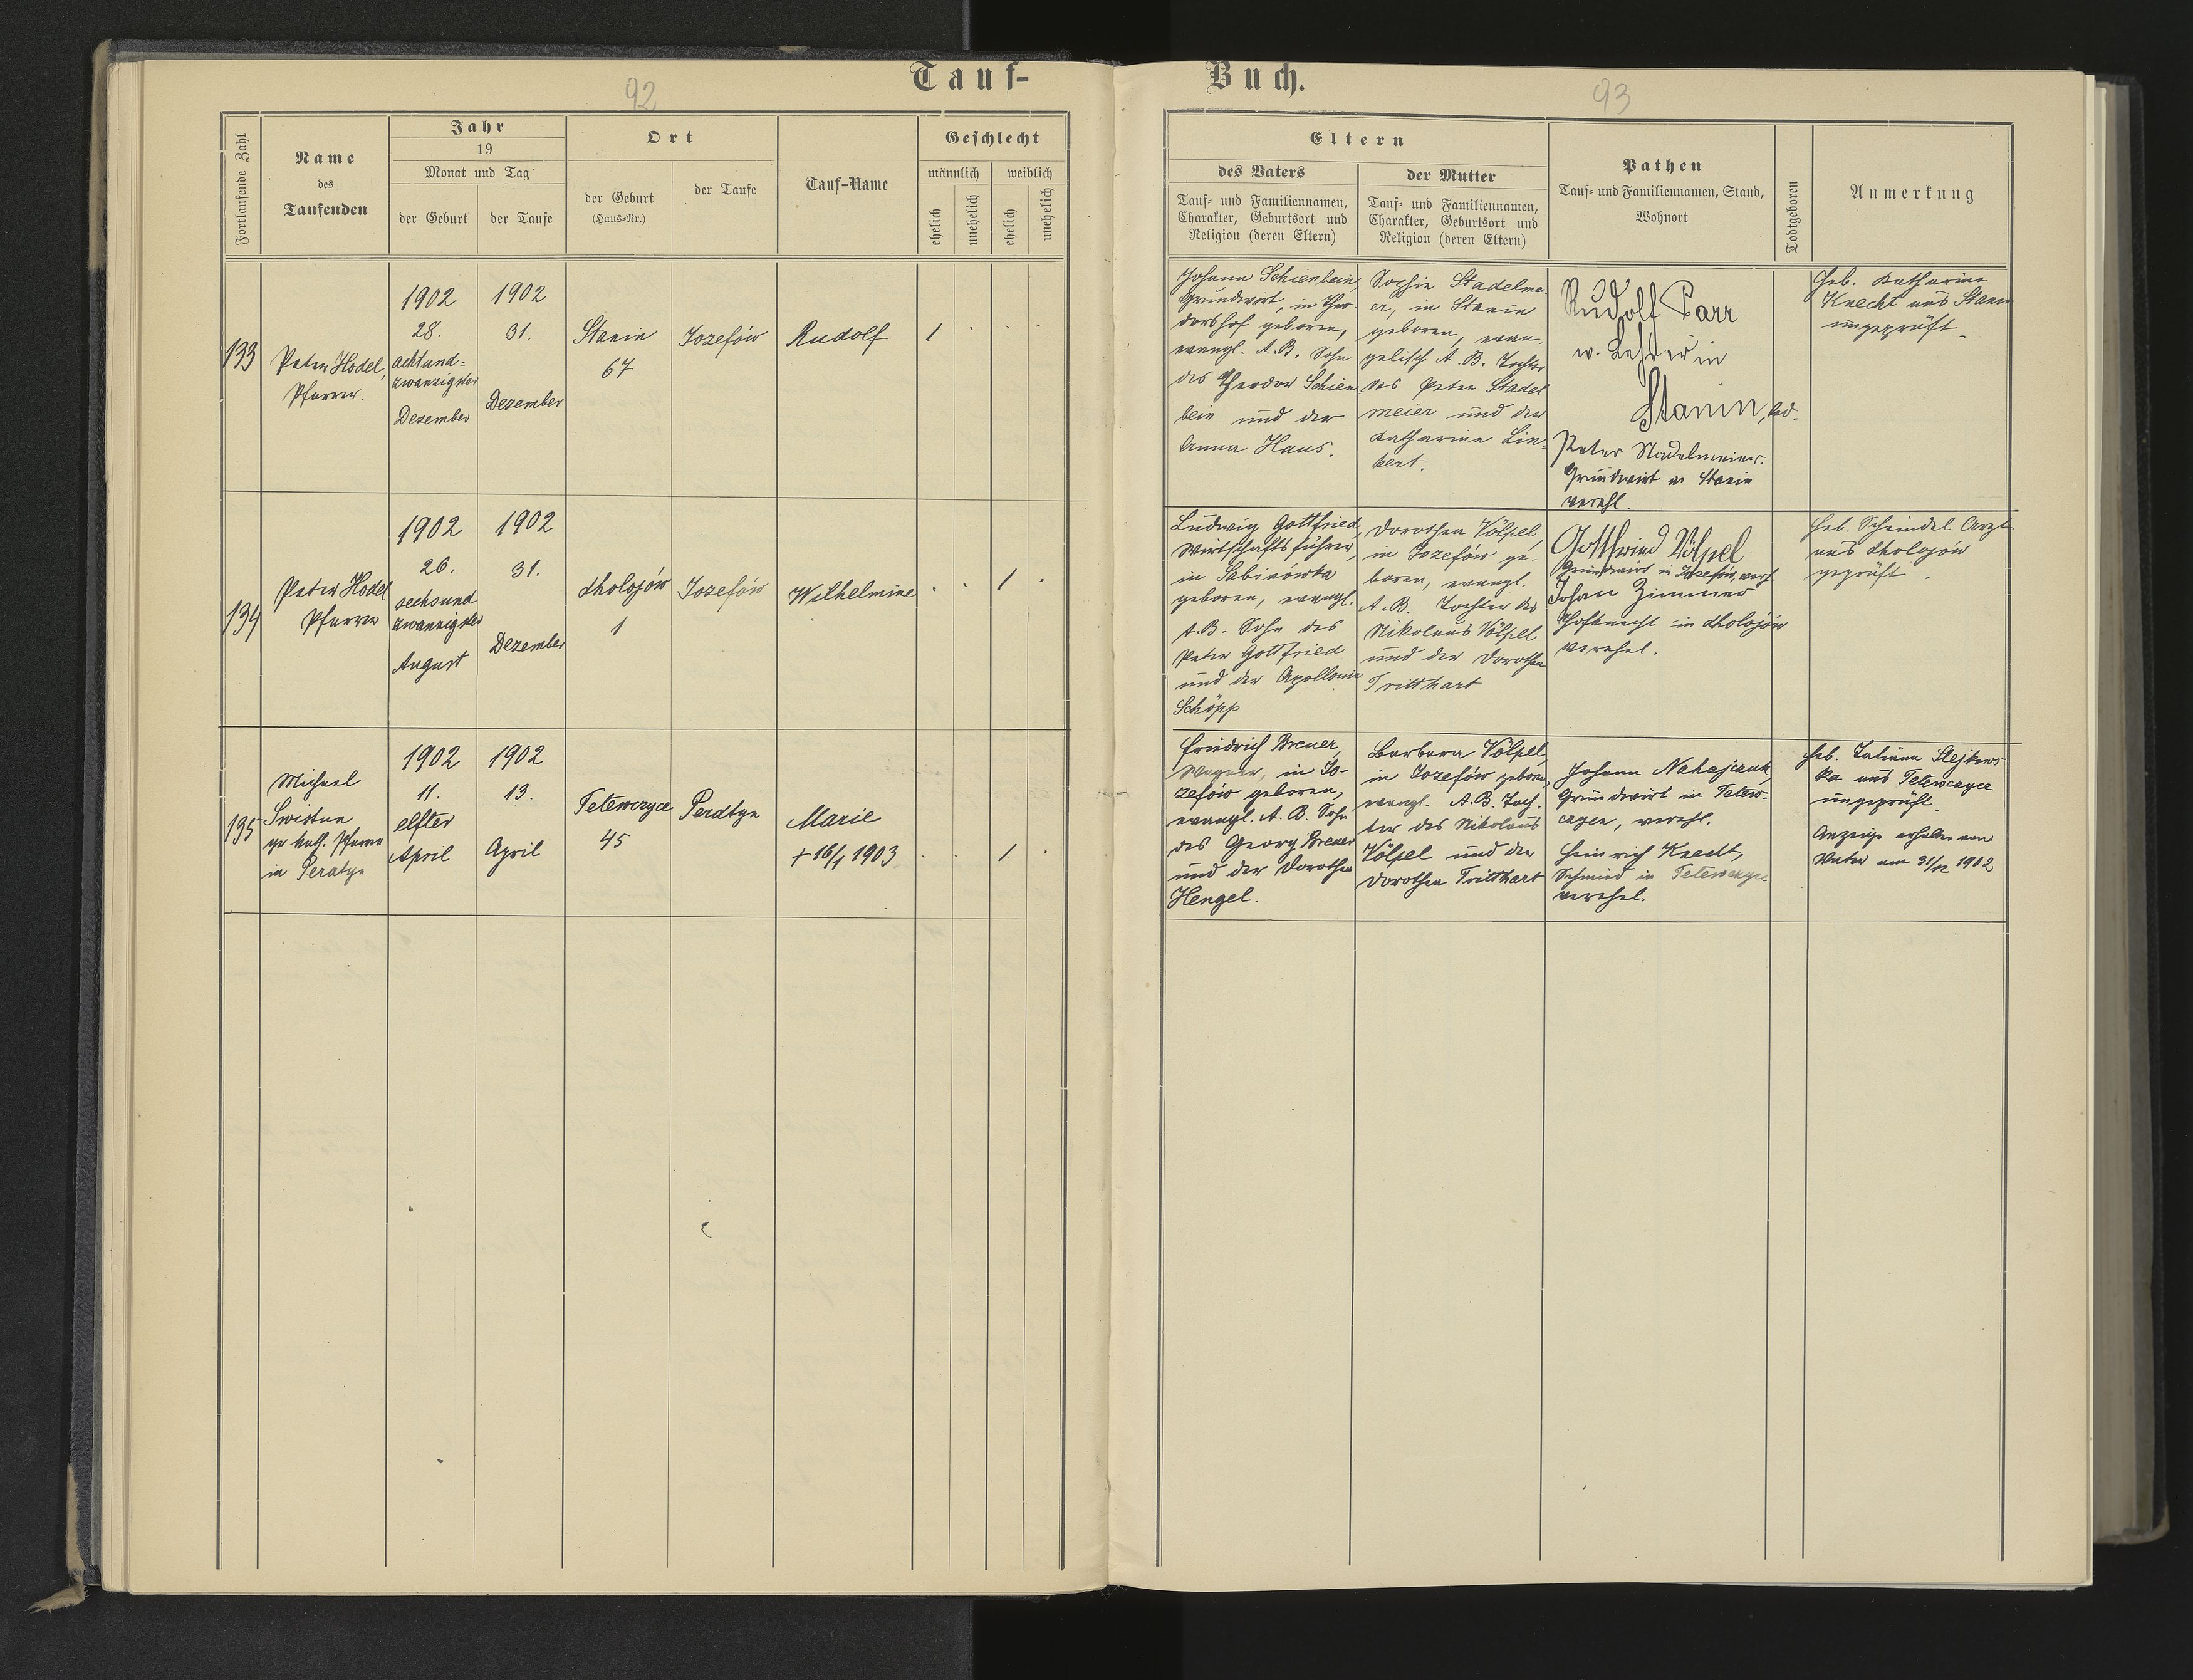 Tauf-
Buch.
92
93
Fortlaufende Zahl
Name
des
Taufenden
Jahr
19
Monat und Tag
der Geburt
der Taufe
Ort
der Geburt
(Haus-Nr.)
der Taufe
Tauf-Name
Geschlecht
männlich
weiblich
ehelich
unehelich
ehelich
unehelich
Eltern
des Vaters
Tauf- und Familiennamen,
Charakter, Geburtsort und
Religion (deren Eltern)
der Mutter
Tauf- und Familiennamen,
Charakter, Geburtsort und
Religion (deren Eltern)
Pathen
Tauf- und Familiennamen, Stand,
Wohnort
Todtgeboren
Anmerkung
133
Peter Hodel,
Pfarrer.
1902
28.
achtund-
zwanzigster
Dezember
1902
31.
Dezember
Stanin
67
Jozefów
Rudolf
1
Johann Schienbein,
Grundwirt, in Theo-
dorshof geboren,
evangl. A.B. Sohn
des Theodor Schien-
bein und der
Anna Haus.
Sophie Stadelmei-
er, in Stanin
geboren, evan-
gelisch A.B. Tochter
des Peter Stadel
meier und der
Katharina Lin-
kert.
Rudolf Parr
ev. Lehrer in
Stanin, led.
Peter Stadelmeier.
Grundwirt in Stanin
verehl.
Heb. Katharina
Knecht aus Stanin
ungeprüft.
134
Peter Hodel
Pfarrer
1902
26.
sechsund
zwanzigster
August
1902
31.
Dezember
Cholojów
1
Jozefów
Wilhelmine
1
Ludwig Gottfried,
Wirtschaftsführer,
in Sabinówka
geboren, evangl.
A.B. Sohn des
Peter Gottfried
und der Apollonia
Schöpp
Dorothea Völpel,
in Jozefów ge-
boren, evangl.
A.B. Tochter des
Nikolaus Völpel
und der Dorothea
Tritthart
Gottfried Völpel
Grundwirt in Jozefów, verhl.
Johan Zimmer
Hofknecht in Cholojów
verehel.
Heb. Scheindel Arzt
aus Cholojów
geprüft.
135
Michael
Swistun
gr. kath. Pfarrer
in Peratyn
1902
11.
elfter
April
1902
13.
April
Tetewczyce
45
Perätyn
Marie
+ 16/1 1903
1
Friedrich Breuer,
Wagner, in Jo-
zefów geboren,
evangl. A.B. Sohn
des Georg Breuer
und der Dorothea
Hengel.
Barbara Völpel,
in Jozefów geboren,
evangl. A.B. Toch-
ter des Nikolaus
Völpel und der
Dorothea Tritthart
Johann Nahajczuk
Grundwirt in Tetew-
czyce, verehl.
Heinrich Knecht,
Schmied in Tetewczyce
verehel.
Heb. Tatiana Slejkows-
ka aus Tetewczyce
ungeprüft.
Anzeige erhalten vom
Vater am 31/12 1902